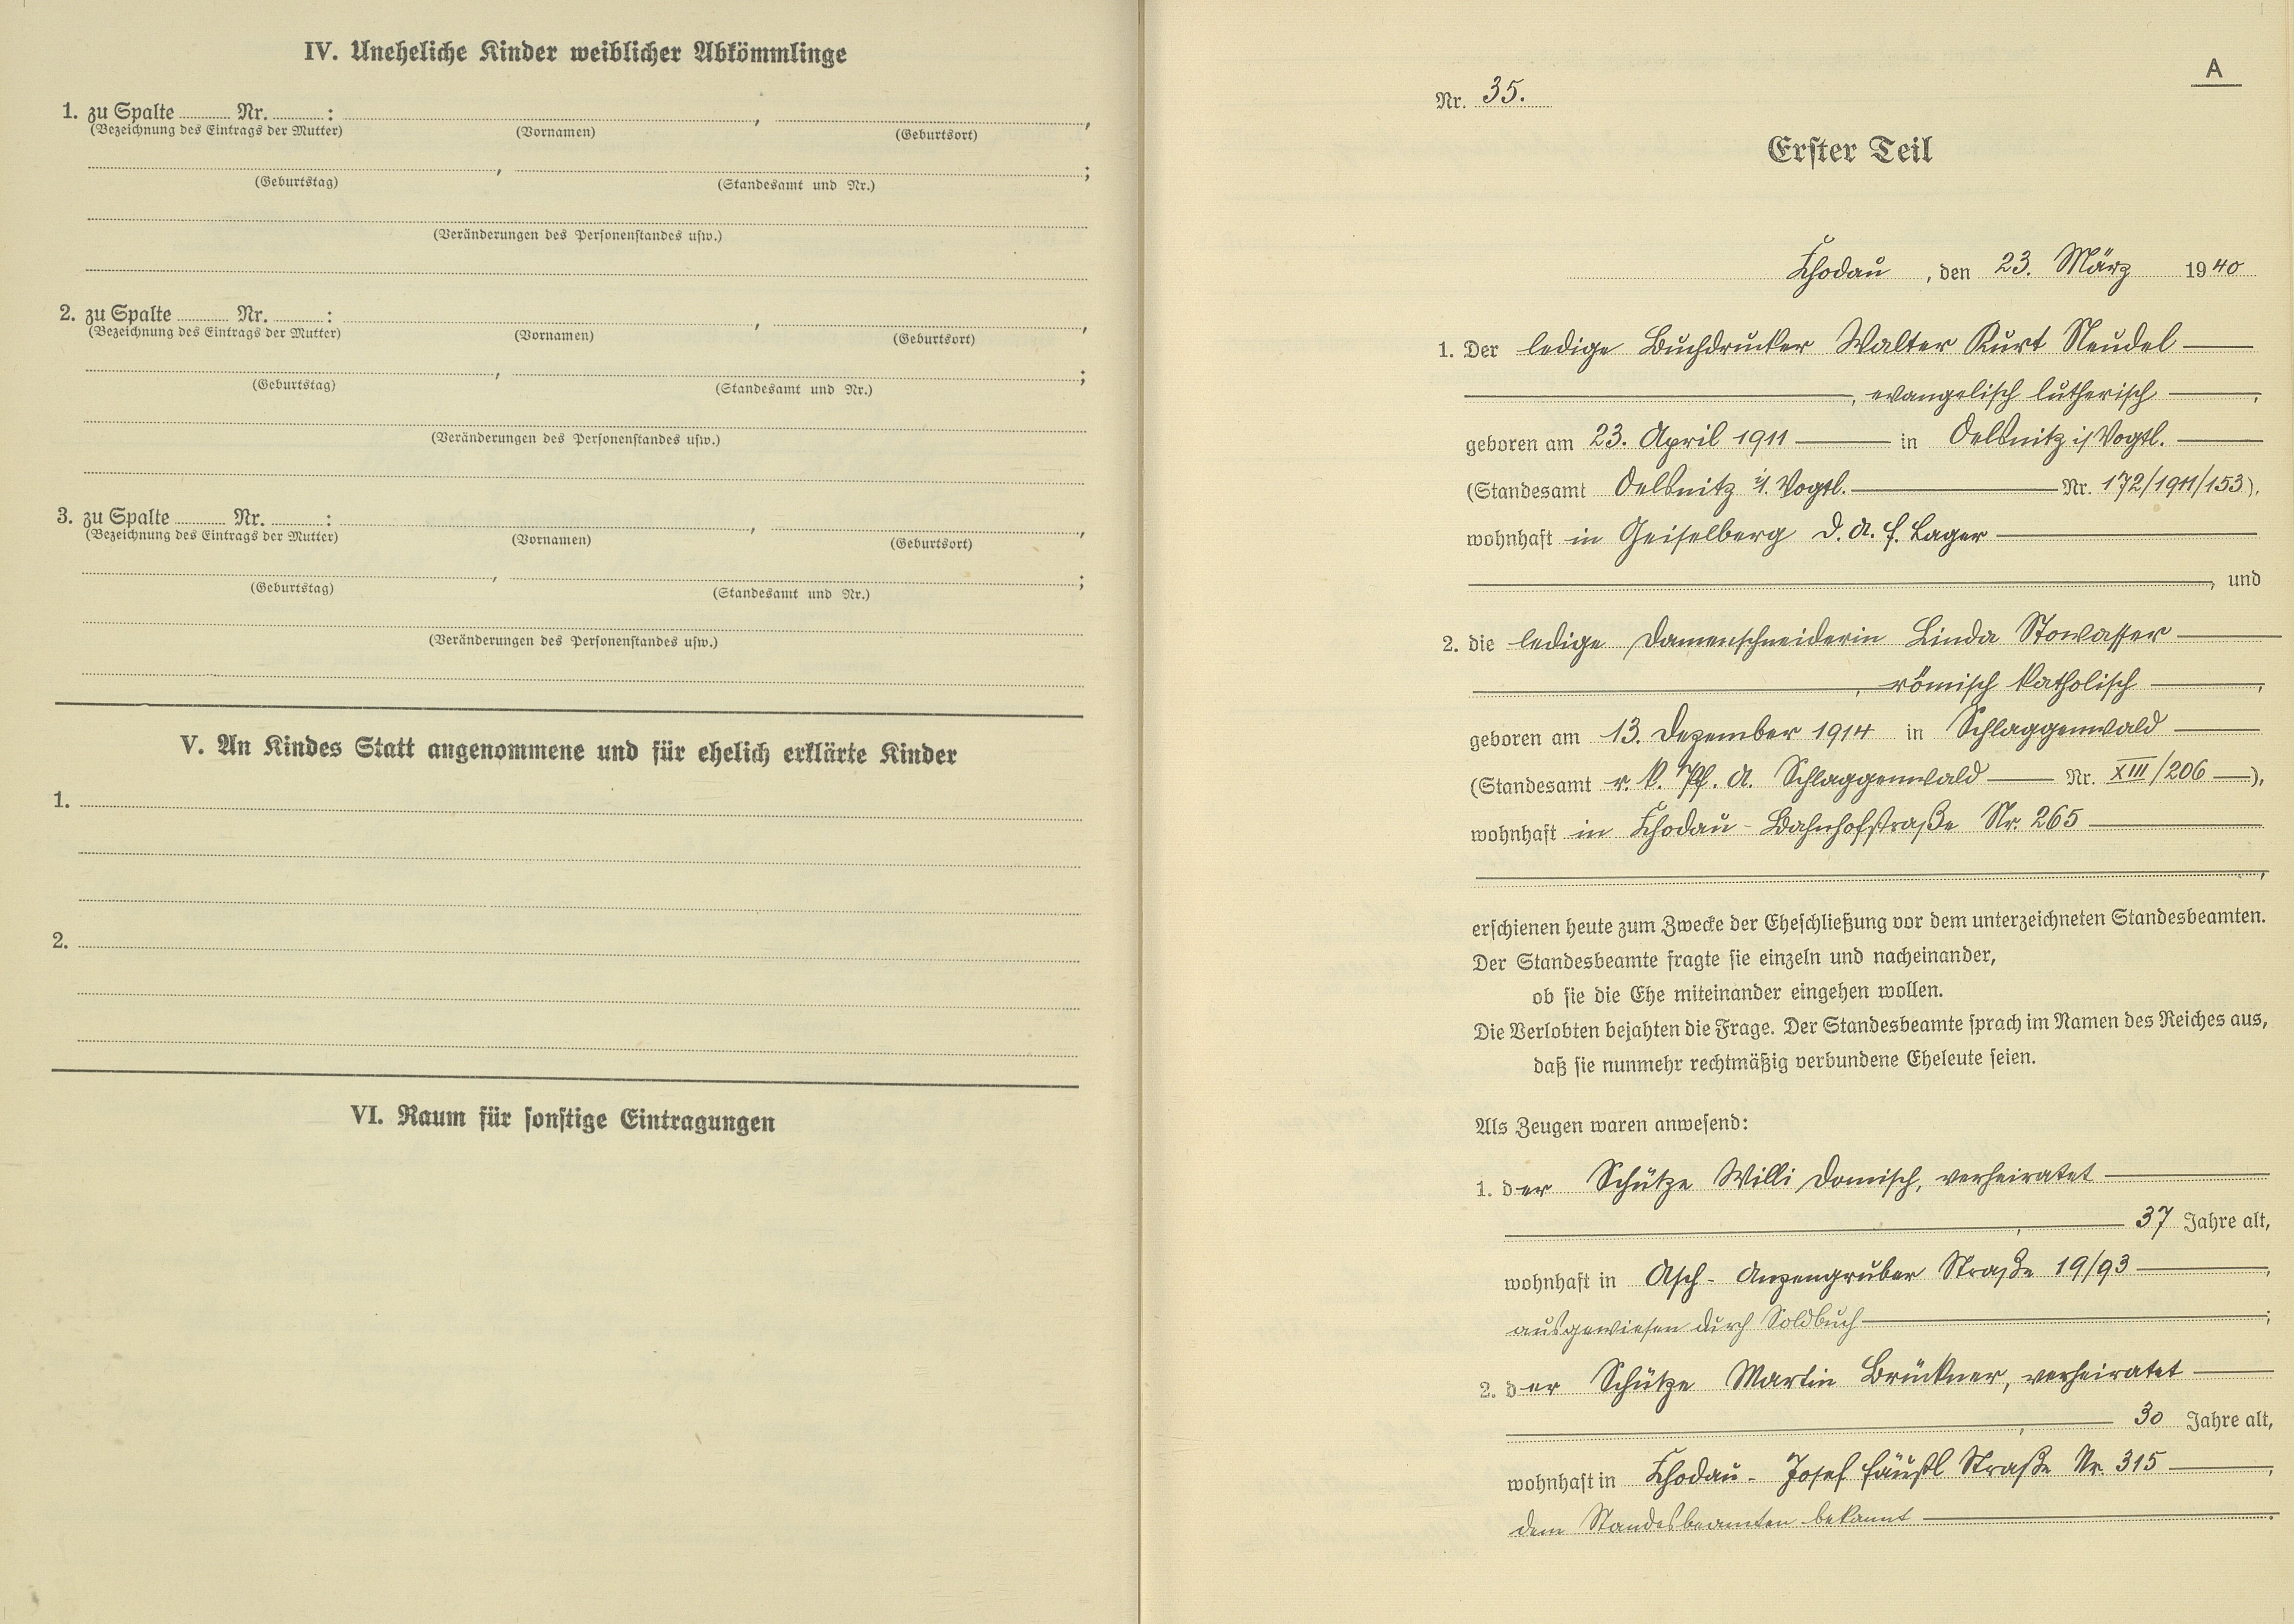 IV. Uneheliche Kinder weiblicher Abkömmlinge
1. zu Spalte ........ Nr. ........ : ........ , ........ ,
(Bezeichnung des Eintrags der Mutter) (Vornamen) (Geburtsort)
........ , ........ ;
(Geburtstag) (Standesamt und Nr.)
(Veränderungen des Personenstandes usw.)
2. zu Spalte ........ Nr. ........ : ........ , ........ ,
(Bezeichnung des Eintrags der Mutter) (Vornamen) (Geburtsort)
........ , ........ ;
(Geburtstag) (Standesamt und Nr.)
(Veränderungen des Personenstandes usw.)
3. zu Spalte ........ Nr. ........ : ........ , ........ ,
(Bezeichnung des Eintrags der Mutter) (Vornamen) (Geburtsort)
........ , ........ ;
(Geburtstag) (Standesamt und Nr.)
(Veränderungen des Personenstandes usw.)
V. An Kindes Statt angenommene und für ehelich erklärte Kinder
1.
2.
VI. Raum für sonstige Eintragungen
A
Nr. 35.
Erster Teil
Chodau, den 23. März 1940
1. Der ledige Buchdrucker Walter Kurt Neudel
, evangelisch lutherisch ,
geboren am 23. April 1911 in Oelsnitz i/Vogtl.
(Standesamt Oelsnitz i/. Vogtl. Nr. 172/1911/153),
wohnhaft in Geiselberg D. A. F. Lager
, und
2. die ledige Damenschneiderin Linda Stowasser
, römisch katholisch ,
geboren am 13. Dezember 1914 in Schlaggenwald
(Standesamt r. k. Pf. A. Schlaggenwald Nr. XIII/206 ),
wohnhaft in Chodau - Bahnhofstraße Nr. 265
,
erschienen heute zum Zwecke der Eheschließung vor dem unterzeichneten Standesbeamten.
Der Standesbeamte fragte sie einzeln und nacheinander,
ob sie die Ehe miteinander eingehen wollen.
Die Verlobten bejahten die Frage. Der Standesbeamte sprach im Namen des Reiches aus,
daß sie nunmehr rechtmäßig verbundene Eheleute seien.
Als Zeugen waren anwesend:
1. der Schütze Willi Domisch, verheiratet
, 37 Jahre alt,
wohnhaft in Asch - Anzengruber Straße 19/93 ,
ausgewiesen durch Soldbuch ;
2. der Schütze Martin Brückner, verheiratet
, 30 Jahre alt,
wohnhaft in Chodau - Josef Fäustl Straße Nr. 315 ,
dem Standesbeamten bekannt .